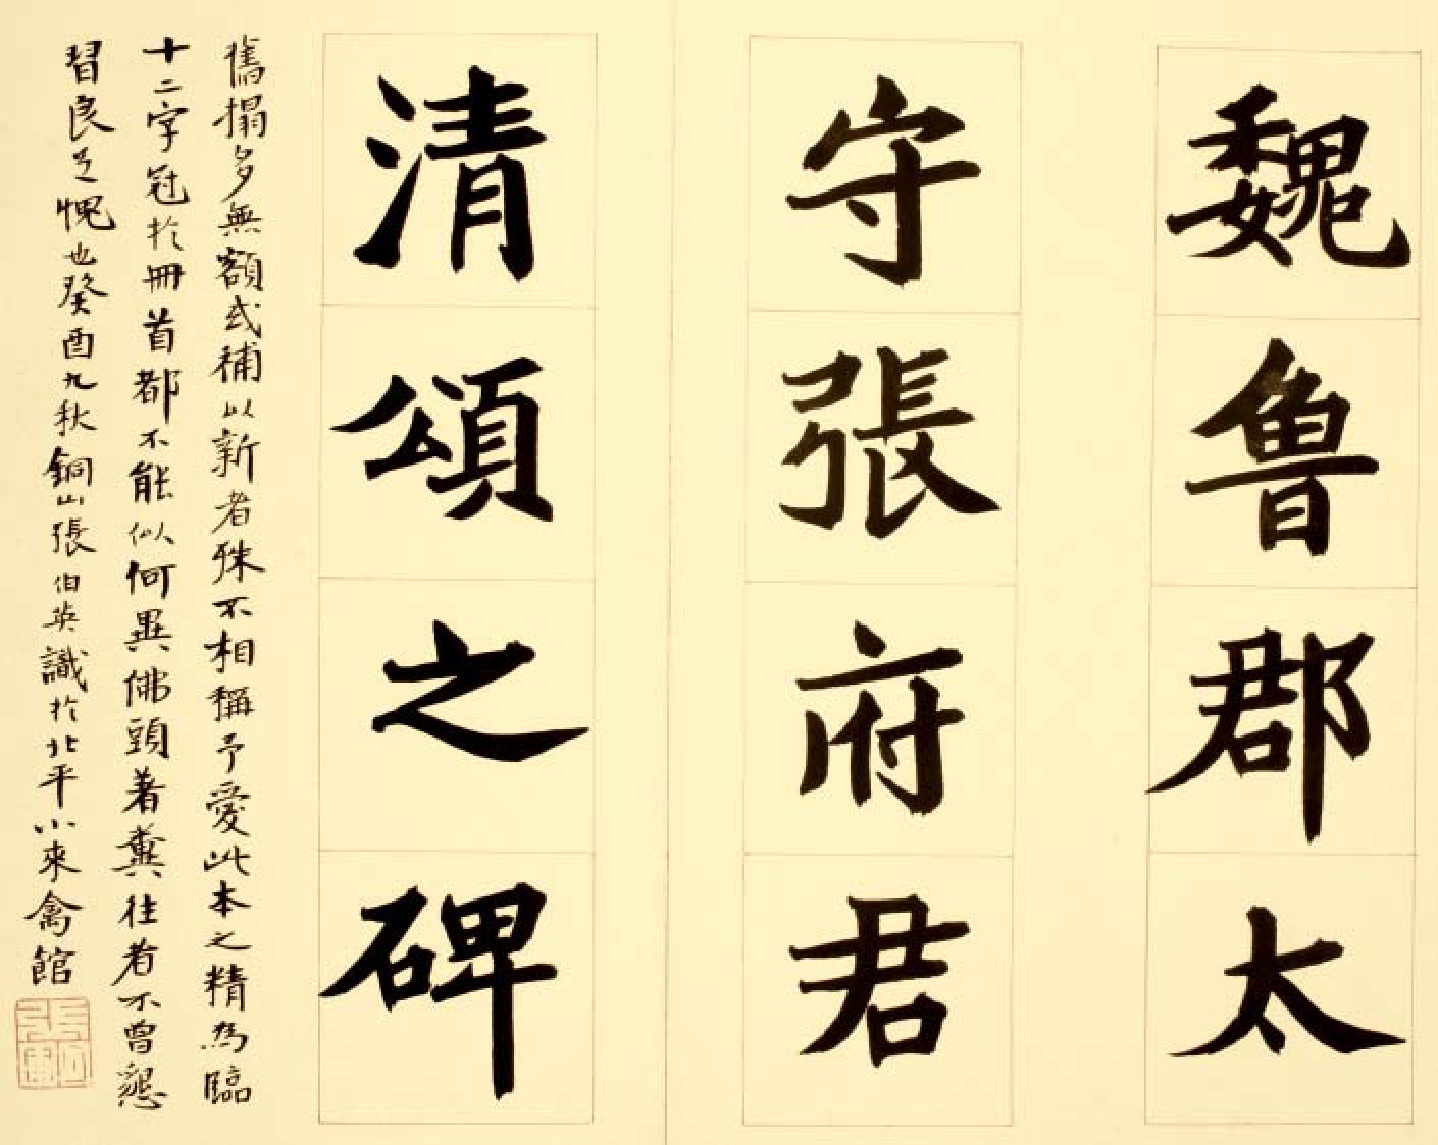 魏魯郡太
守張府君
清頌之碑
舊搨多無額或補以新者殊不相稱予愛此本之精為臨
十二字冠於冊首都不能似何異佛頭著糞往者不曾懇
習良足愧也癸酉九秋銅山張伯英識於北平小來禽館